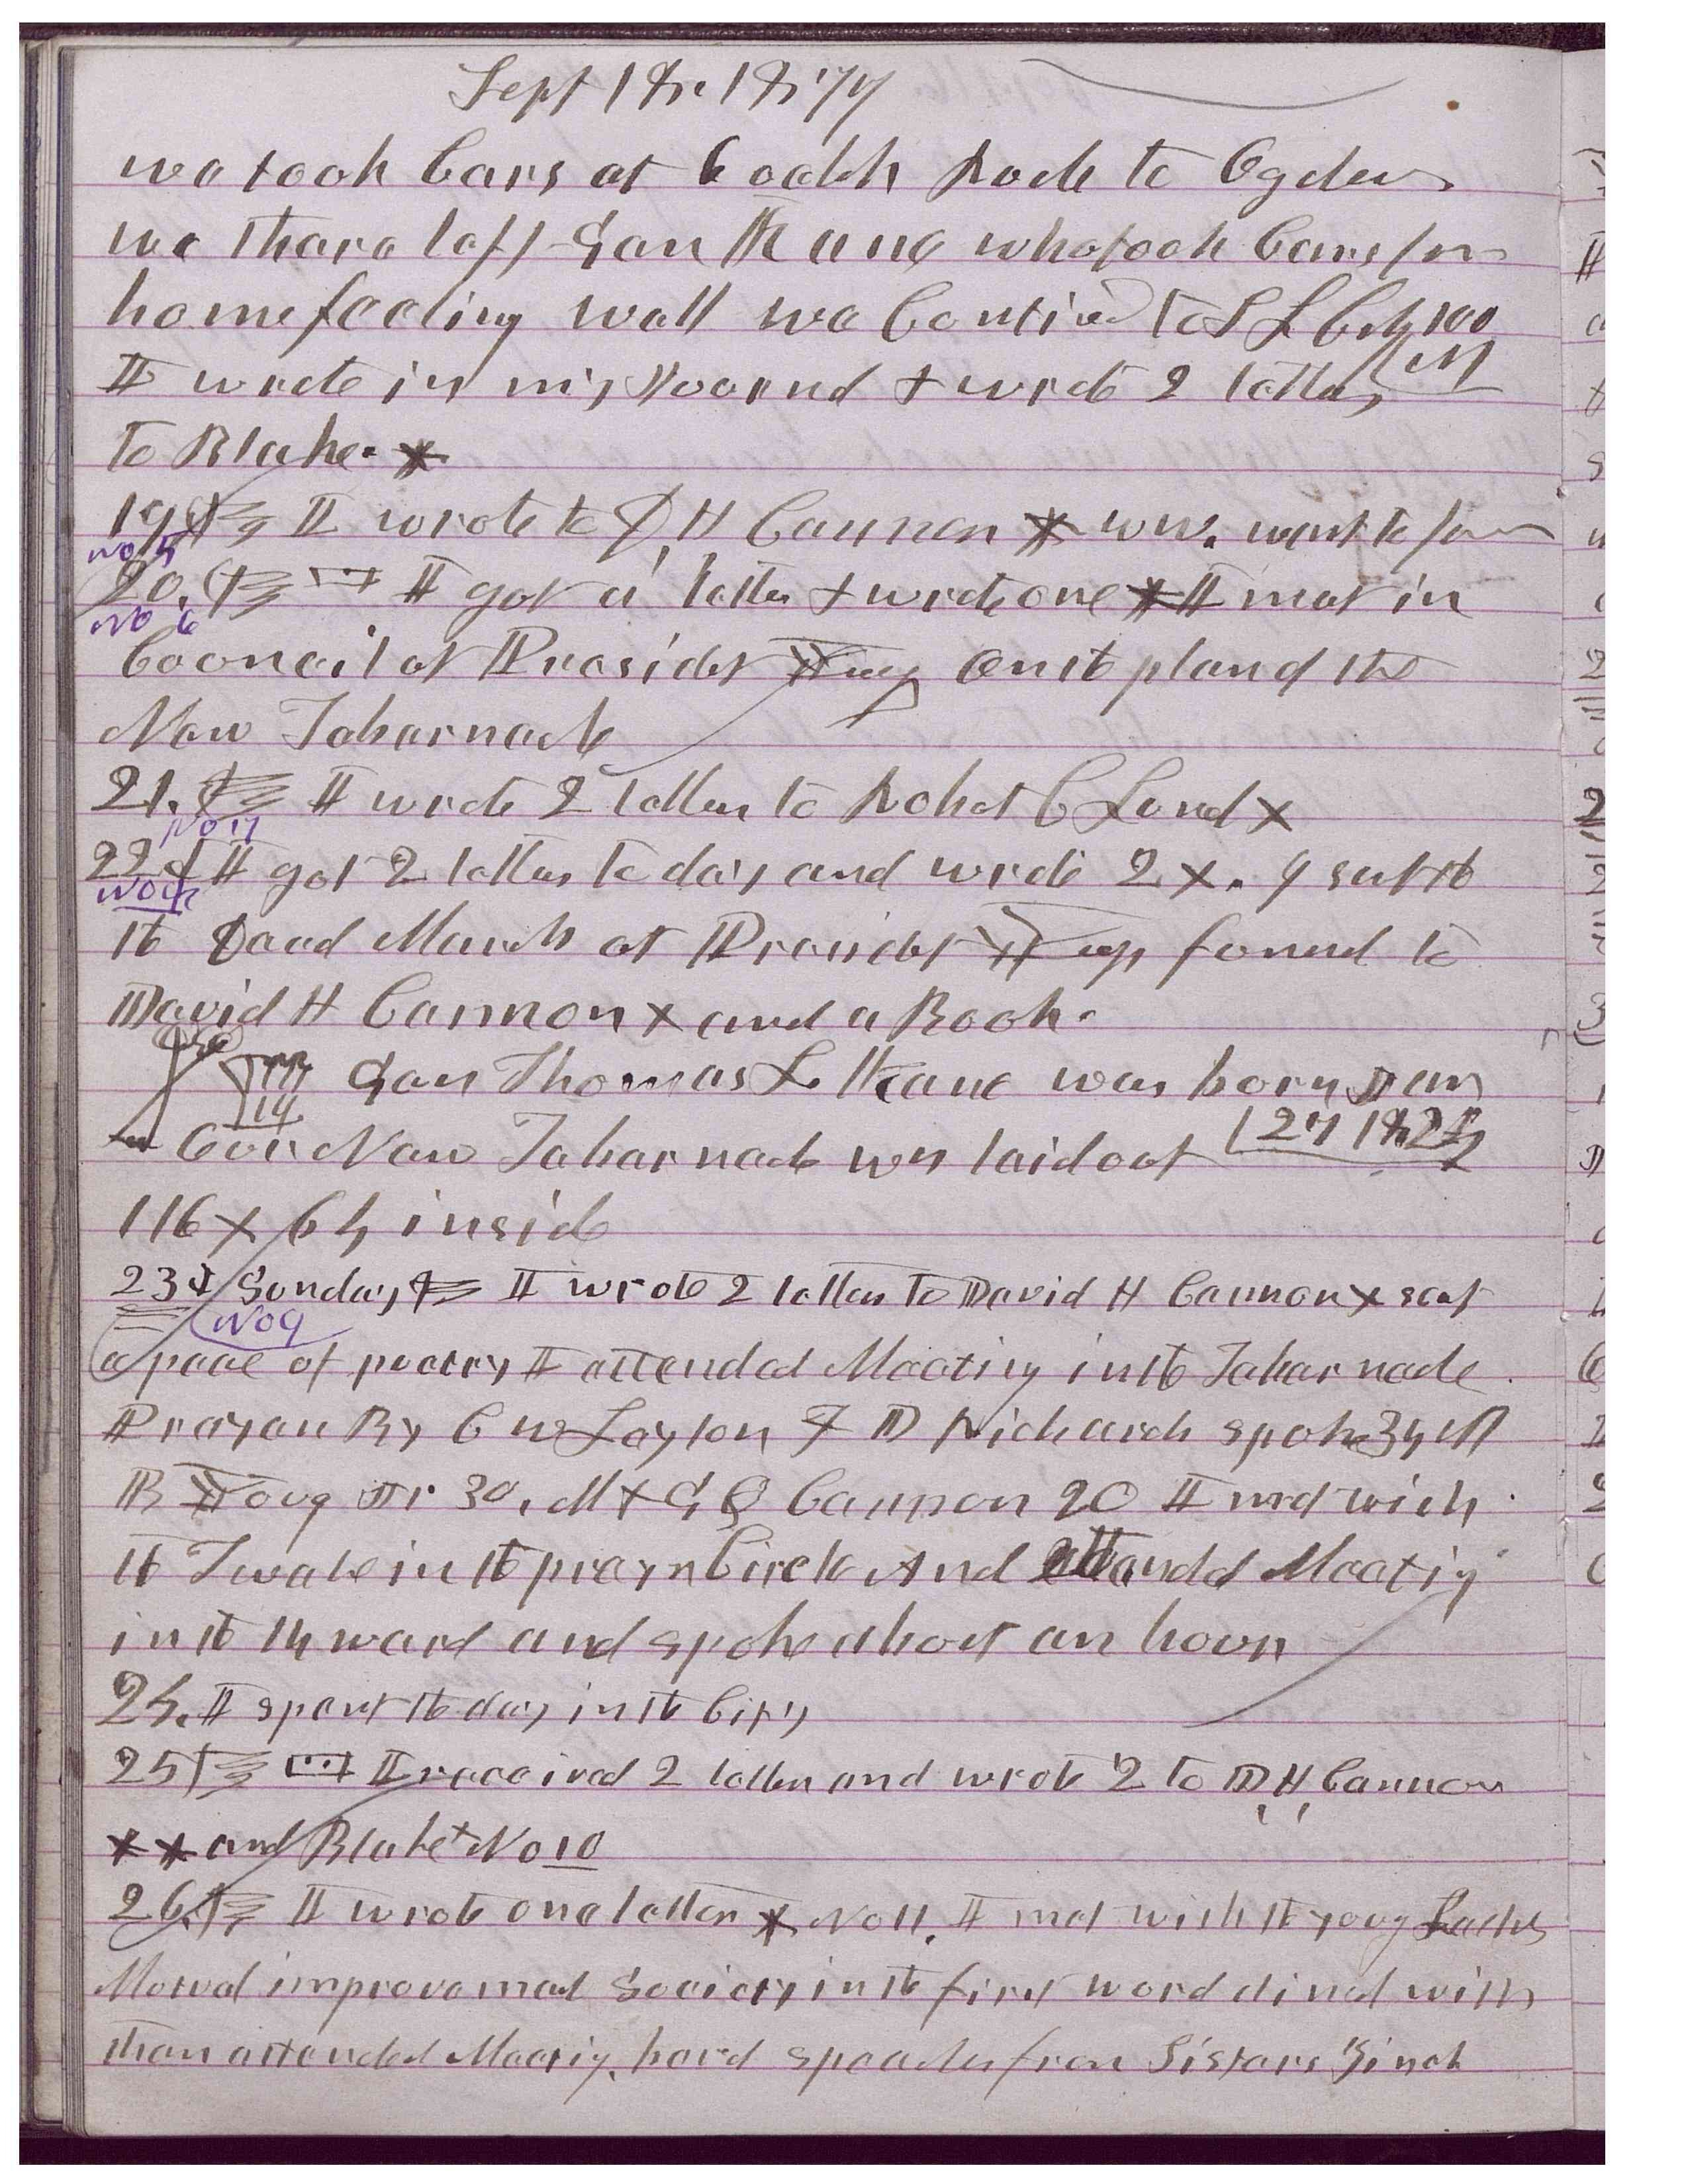 Sept 18. 1877
we took Cars at 6 oclok Rode to Ogden
we thare left Gen Kane who took Cars for
home feeling well we Continued to S L City 100
I wrote in my Journal & wrote 2 letters M
to Blake. X
19 I wrote to D H Cannon X WW. went to
No 5
20. I got a letter & wrote one X I met in
No 6
Cooncil at Presidet Youngs on the plan of the
New Tabarnacle
21. I wrote 2 letters to Robet C Lund X
No 7
22 I got 2 letters to day and wrote 2 X. I sent the
No 8
the Dead March at Presidet Youngs funeral to
David H Cannon X and a Book.
Gen Thomas L Kane was born Jan
27 1822
Our New Tabarnacle was laid out
116 X 64 inside
23 Sunday I wrote 2 letters to David H Cannon X sent
No 9
a peace of poetry I attended Meeting in the Tabarnacle
Prayer By C W Layton F D Richards spoke 34 M
B Young Jr 30. M & G Q Cannon 20 I met with
the Twelve in the prayer Circle And attended Meeting
in the 14 ward and spoke about an hour
24. I spent the day in the City
25 I received 2 letters and wrote 2 to D H Cannon
X X and Blake X No 10
26. I wrote one letter X No 11. I met with the young Ladies
Mutual improvement Society in the first word dined with
them attended Meeting, herd speaches from Sistars